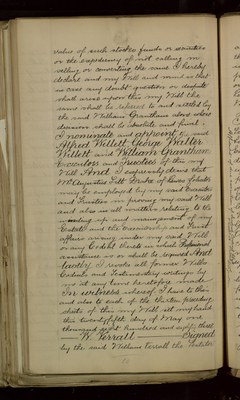 value of such stocks funds or securities
or the expediency of not calling in
selling or converting the same I hereby
declare and my Will and mind is that
in case any doubt question or dispute
shall arise upon this my Will the
same shall be referred to and settled by
the said William Grantham alone whose
decision shall be absolute and final
I nominate and appoint the said
Alfred Willett George Walter
Willett and William Grantham
Executors and Trustees of this my
Will And I expressly desire that
Mr Augustus Gill of Lewes
may be employed by my said Executors
and Trustees in proving my said Will
and also in all matters relating to the
winding up and management of my
Estate and the Executorship and Trust
affairs arising under my said Will
or any Codicil thereto in which Professional
assistance is or shall be required And
lastly I revoke all former Wills
Codicils and Testamentary writings by
me at any time heretofore made
In witness whereof I have to this
and also to each of the thirteen preceding
sheets of this my Will set my hand
this twenty fifth day of May one
thousand eight hundred and sixty three
W. Verrall Signed
by the said William Verrall the Testator